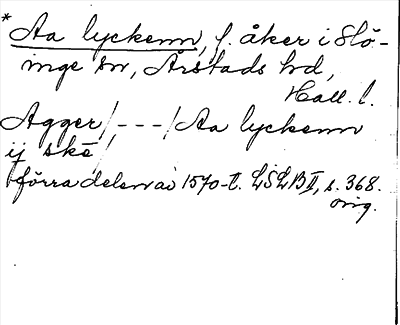 * Aa lyckenn, f. åker i Slö-
inge sn, Årstads hd,
Hall. l.
Agger/---/Aa lyckenn
ij skē
förra delen av 1570-t. LSLB II, s. 368.
orig.